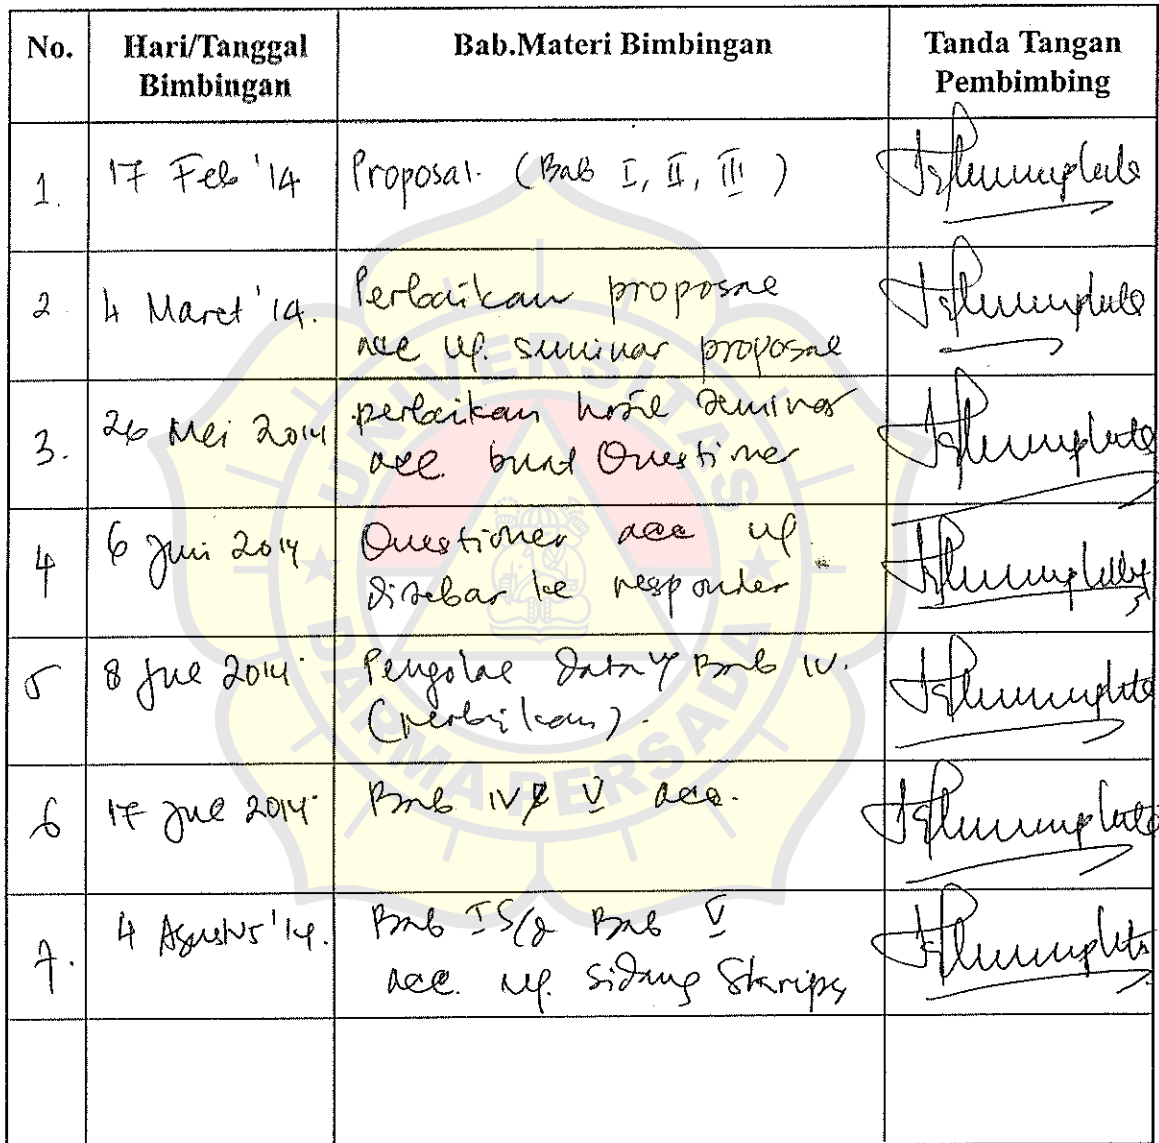 No.
Hari/Tanggal
Bimbingan
Bab.Materi Bimbingan
Tanda Tangan
Pembimbing
1.
17 Feb '14
Proposal. (Bab I, II, III)
2.
4 Maret '14.
Perbaikan proposal
acc up. seminar proposal
3.
26 Mei 2014
perbaikan hasil seminar
acc. buat Questioner
4
6 Juni 2014
Questioner acc up.
disebar ke responden
5
8 Jul 2014
Pengolae data Bab IV.
(perbaikan).
6
17 Jul 2014
Bab IV & V acc.
7.
4 Agustus '14.
Bab I S/d Bab V
acc. up. sidang Skripsi
UNIVERSITAS
DARMA PERSADA